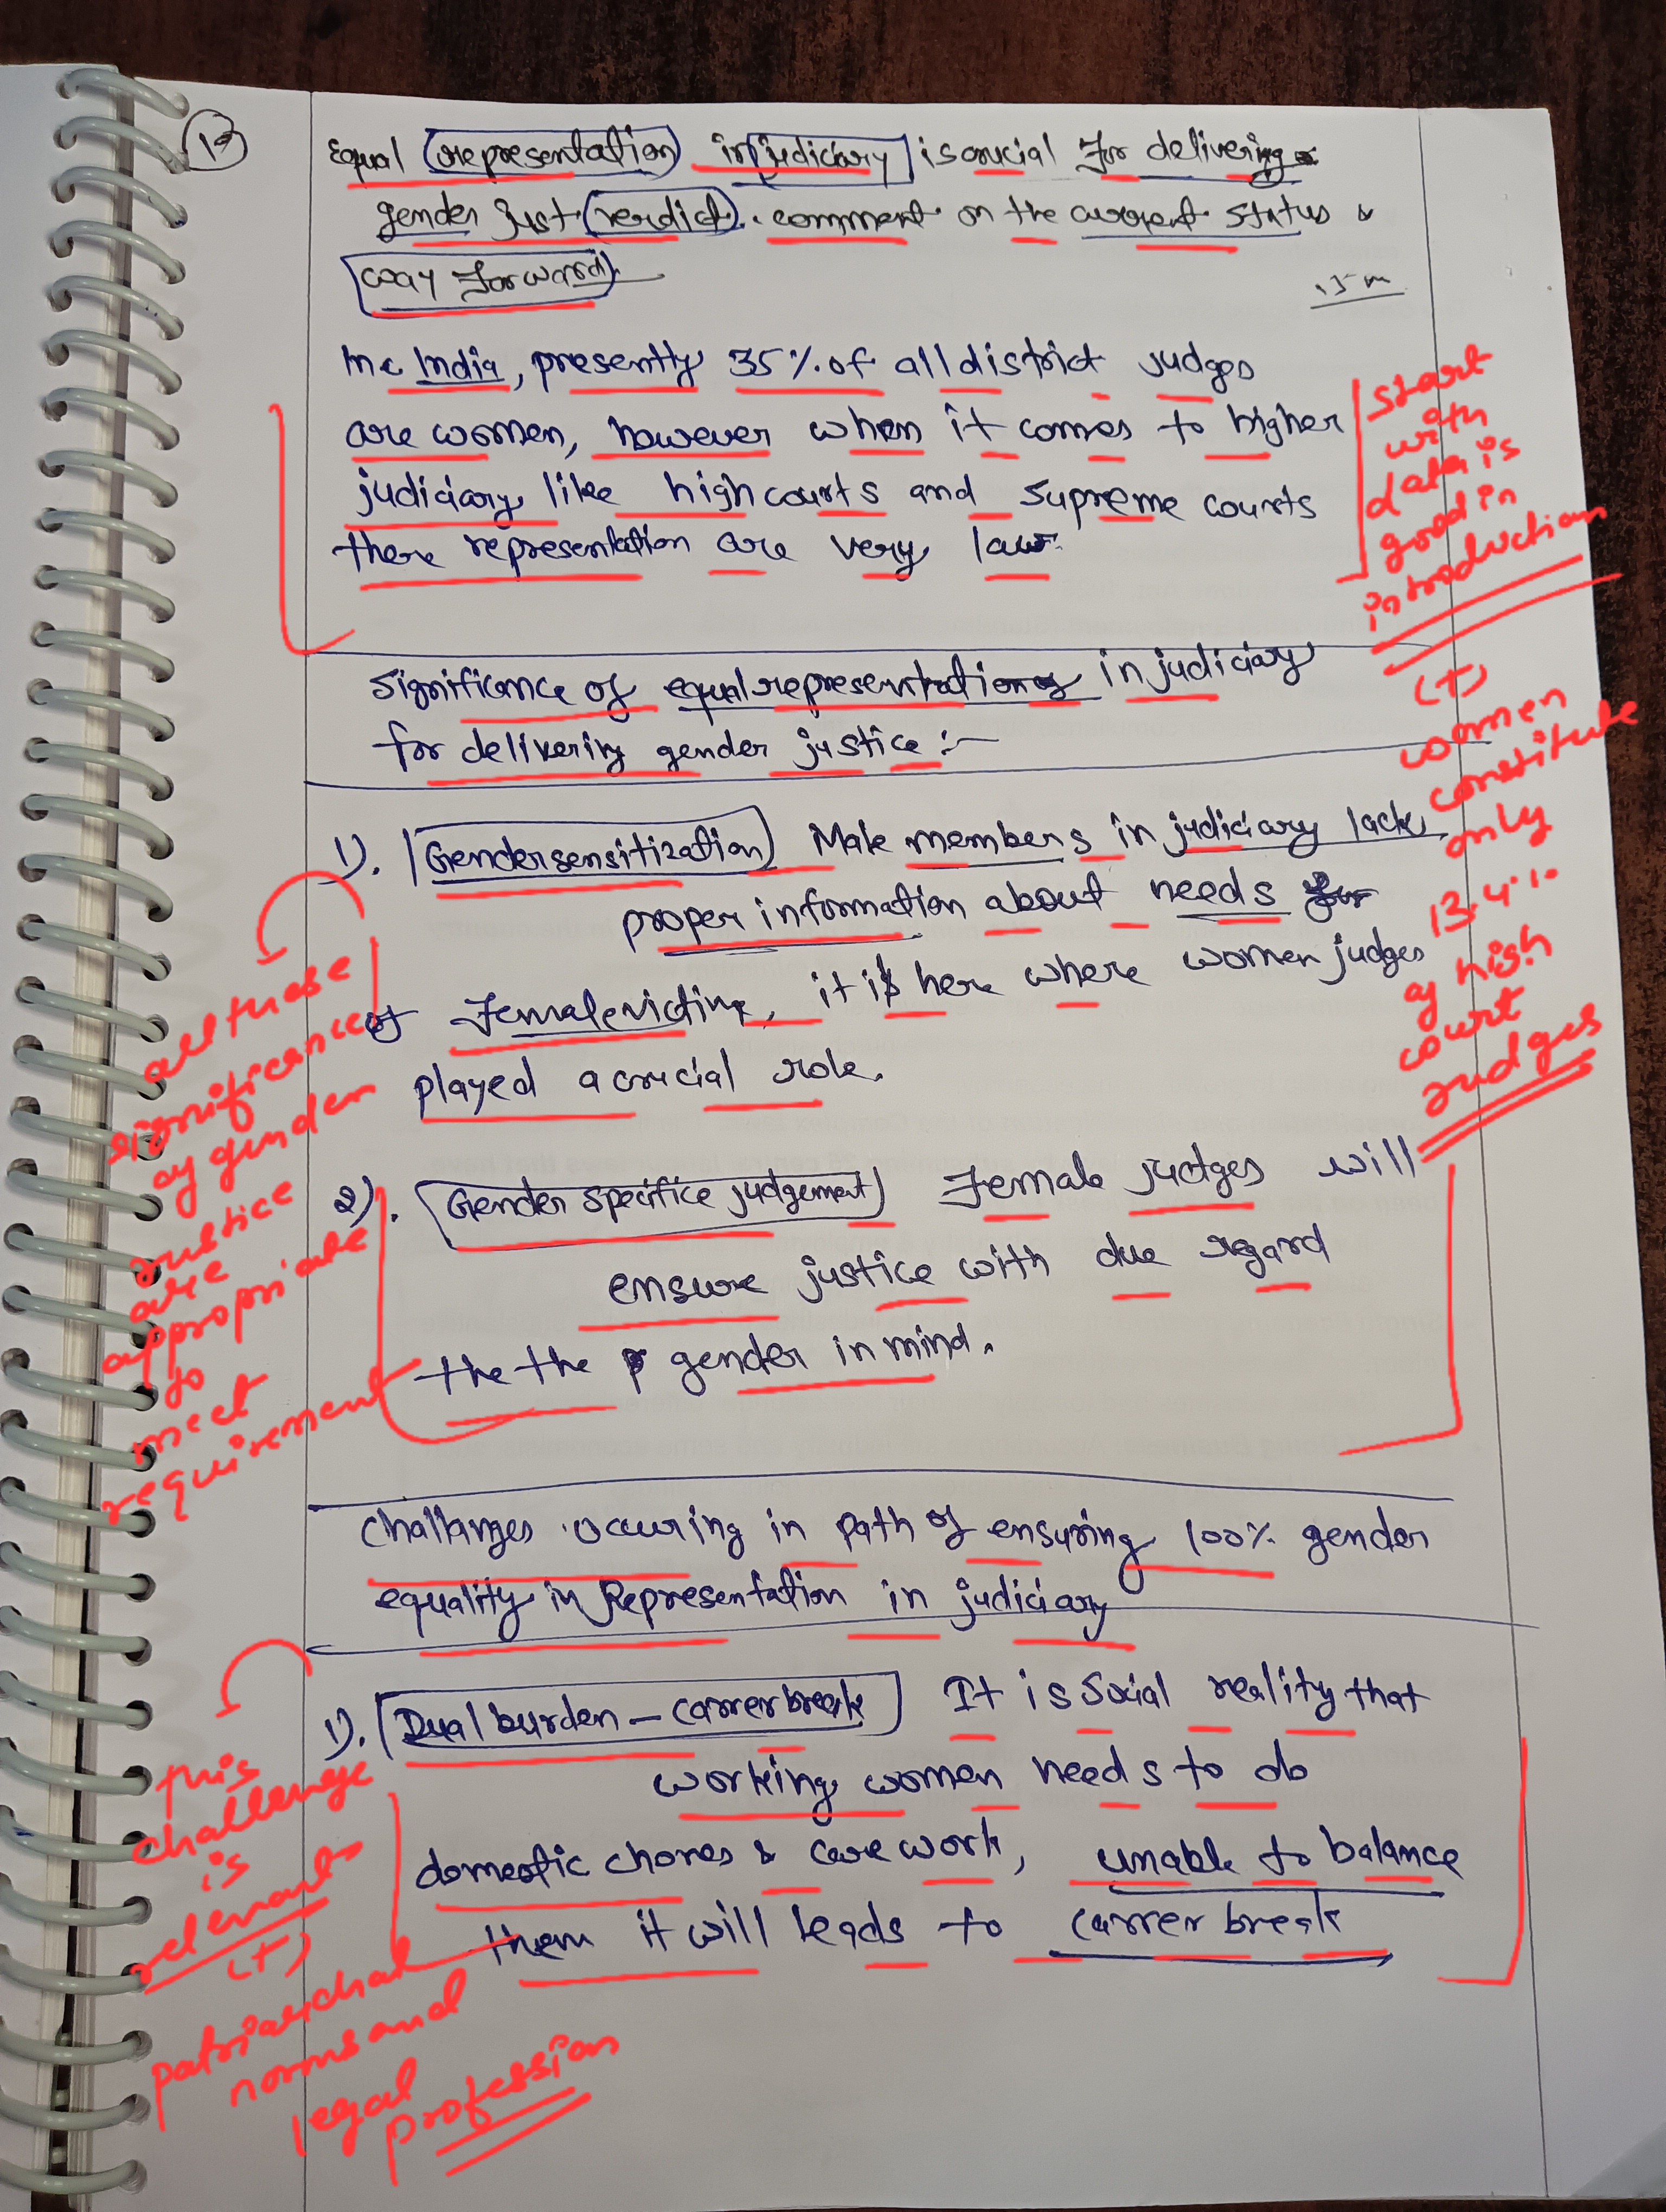 19
Equal representation in judiciary is crucial for delivering
gender just verdict. comment on the current status &
way forward
15 m
In India, presently 35% of all district judges
are women, however when it comes to higher
judiciary like high courts and supreme courts
there representation are very law.
start
with
data is
good in
introduction
(+)
women
constitute
only
13.4%
of high
court
judges
Significance of equal representation in judiciary
for delivering gender justice :-
1). Gender sensitization) Male members in judiciary lack
proper information about needs
of Female victim, it is here where women judges
played a crucial role.
all these
significance
of gender
justice
are
appropriate
to
meet
requirement
2). Gender specifice judgement) Female judges will
ensure justice with due regard
the the gender in mind.
challanges occuring in path of ensuring 100% gender
equality in Representation in judiciary
1). Dual burden - carrer break It is Social reality that
working women needs to do
domestic chores & care work, unable to balance
them it will leads to carrer break
this
challenge
is
relevant
(+)
patriarchal
norms and
legal
profession